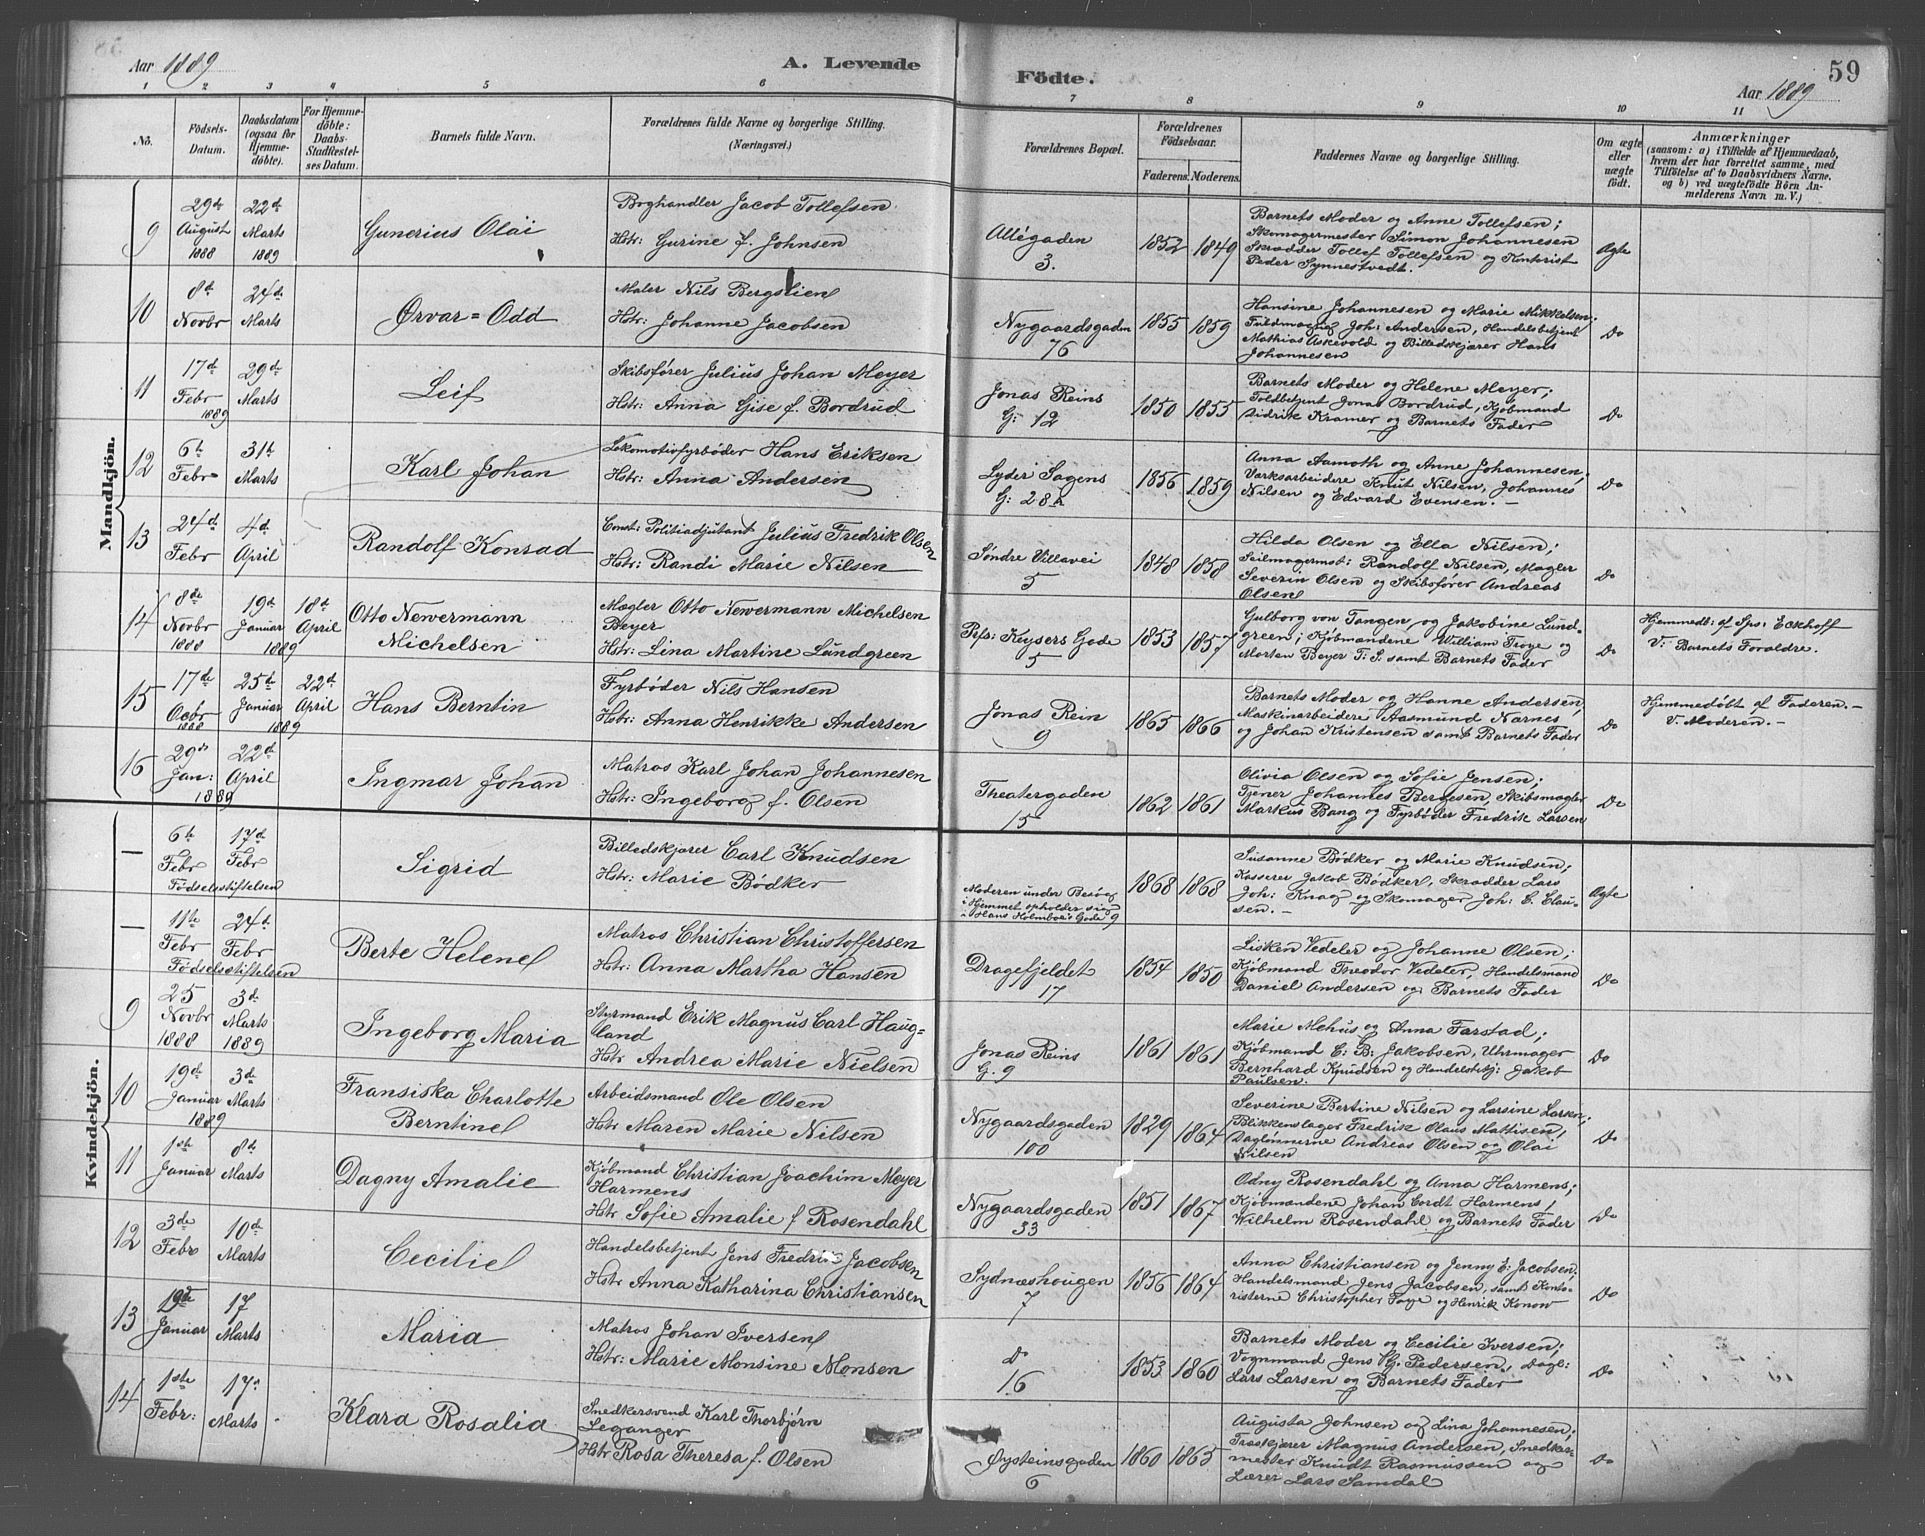 Aar 1889
A. Levende
Födte.
59
Aar 1889
1 2 3 4 5 6 7 8 9 10 11
No.
Födsels-Datum.
Daabsdatum (ogsaa for Hjemmedöbte).
For Hjemmedöbte: Daabs-Stadfæstelses Datum.
Barnets fulde Navn.
Forældrenes fulde Navne og borgerlige Stilling. (Næringsvei.)
Forældrenes Bopæl.
Forældrenes Födselsaar.
Faderens. Moderens.
Faddernes Navne og borgerlige Stilling.
Om ægte eller uægte födt.
Anmærkninger
(saasom: a) i Tilfælde af Hjemmedaab, hvem der har forrettet samme, med Tilföielse af to Daabsvidners Navne, og b) ved uægtefödte Börn Anmelderens Navn m. V.)
Mandkjön.
9
29de August 1888
22de Marts 1889
Gunerius Olai
Boghandler Jacob Tollefsen
Hstr: Gurine f. Johnsen
Allégaden
3.
1852 1849
Barnets Moder og Anne Tollefsen;
Skomagermester Simon Johannesen
Skrædder Tollef Tollefsen og Kontorist
Peder Synnestvedt.
Ægte
10
8d Novbr
24de Marts
Ørvar=Odd
Maler Nils Bergslien
Hstr: Johanne Jacobsen
Nygaardsgaden
76
1855 1859
Hansine Johannesen og Marie Mikkelsen;
Fuldmægtig Joh: Andersen, Handelsbetjent
Mathias Askevold og Billedskjærer Hans
Johannesen
Do
11
17d Febr 1889
29d Marts
Leif
Skibsfører Julius Johan Meyer
Hstr: Anna Gise f. Bordrud
Jonas Reins
G: 12
1850 1855
Barnets Moder og Helene Meyer;
Toldbetjent Jonas Bordrud, Kjøbmand
Didrik Kramer og Barnets Fader
Do
12
6te Febr
31te Marts
Karl Johan
Lokomotivfyrbøder Hans Eriksen
Hstr: Anna Andersen
Lyder Sagens
G: 28 a
1856 1859
Anna Aamoth og Anne Johannesen;
Værksarbeidere Knut Nilsen, Johannes
Nilsen og Edvard Evensen. -
Do
13
24d Febr
4d April
Randolf Konrad
Const: Politiadjutant Julius Fredrik Olsen
Hstr: Randi Marie Nilsen
Søndre Villavei
5
1848 1858
Hilda Olsen og Ella Nilsen;
Seilmagermst: Randolf Nilsen, Mægler
Severin Olsen og Skibsfører Andreas
Olsen
Do
14
8de Novbr 1888
19d Januar 1889
18d April
Otto Newermann
Michelsen
Mægler Otto Newermann Michelsen
Beyer
Hstr: Lina Martine Lundgreen
Pefs: Keysers Gade
5
1853 1857
Gulborg von Tangen og Jakobine Lund-
green; Kjøbmændene William Troye og
Morten Beyer T. S. samt Barnets Fader
Do
Hjemmedb: af Sps: Eckhoff
V: Barnets Forældre.
15
17de Octbr 1888
25de Januar 1889
22d April
Hans Berntin
Fyrbøder Nils Hansen
Hstr: Anna Henrikke Andersen
Jonas Rein
9
1865 1866
Barnets Moder og Hanne Andersen,
Maskinarbeidere Aasmund Nærnes
og Johan Kristensen samt Barnets Fader
Do
Hjemmedöbt af Faderen. -
V. Moderen. -
16
29de Jan: 1889
22d April
Ingmar Johan
Matros Karl Johan Johannesen
Hstr: Ingeborg f. Olsen
Theatergaden
15
1862 1861
Olivia Olsen og Sofie Jensen;
Tjener Johannes Bergesen, Skibsmægler
Markus Bang og Fyrbøder Fredrik Larsen
Do
Kvindekjön.
—
6te Febr
17d Febr
Födselsstiftelsen
Sigrid
Billedskjærer Carl Knudsen
Hstr: Marie Bødker
Moderen under Besøg
i Hjemmet opholder sig
i Hans Holmboe's Gade 9
1868 1868
Susanne Bødker og Marie Knudsen;
Kasserer Jakob Bødker, Skrædder Lars
Joh: Knag og Skomager Joh: C. Clau-
sen. -
Ægte
—
11te Febr
24d Febr
Födselsstiftelsen
Berte Helene
Matros Christian Christoffersen
Hstr: Anna Martha Hansen
Dragefjeldet
17
1854 1850
Lisken Vedeler og Johanne Olsen;
Kjøbmand Theodor Vedeler, Handelsmand
Daniel Andersen og Barnets Fader
Do
9
25 Novbr 1888
3d Marts 1889
Ingeborg Maria
Styrmand Erik Magnus Carl Haug-
land
Hstr Andrea Marie Nielsen
Jonas Reins
G. 9
1861 1861
Marie Mehus og Anna Farstad;
Kjøbmand C. B. Jakobsen, Uhrmager
Bernhard Knudsen og Handelsbetj: Jakob
Paulsen.
Do
10
19de Januar 1889
3de Marts
Fransiska Charlotte
Berntine
Arbeidsmand Ole Olsen
Hstr Maren Marie Nilsen
Nygaardsgaden
100
1829 1864
Severine Bertine Nilsen og Larsine Larsen;
Blikkenslager Fredrik Olaus Mattisen,
Daglønnerne Andreas Olsen og Olai
Nilsen
Do
11
1ste Januar
8de Marts
Dagny Amalie
Kjøbmand Christian Joachim Meyer
Harmens
Hstr Sofie Amalie f Rosendahl
Nygaardsgaden
33
1851 1867
Odny Rosendahl og Anna Harmens;
Kjøbmændene Johan Cordt Harmens,
Wilhelm Rosendahl og Barnets Fader
Do
12
3de Febr
10de Marts
Cecilie
Handelsbetjent Jens Fredrik Jacobsen
Hstr Anna Katharina Christiansen
Sydnæshougen
7
1856 1864
Anna Christiansen og Jenny E: Jacobsen;
Handelsmand Jens Jacobsen, samt Konto-
risterne Christopher Faye og Henrik Konow
Do
13
Januar
17 Marts
Maria
Matros Johan Iversen
Hstr: Marie Monsine Monsen
Do
16
1853 1860
Barnets Moder og Cecilie Iversen;
Vognmand Jens Pedersen, Dagl:
Lars Larsen og Barnets Fader
Do
14
1ste Febr:
17d Marts
Klara Rosalia
Snedkersvend Karl Thorbjørn
Leganger
Hstr Rosa Theresa f. Olsen
Øysteinsgaden
6
1860 1865
Augusta Johnsen og Lina Johannesen;
Træskjærer Magnus Andersen, Snedker-
mester Knudt Rasmussen og
Lærer Lars Samdal
Do